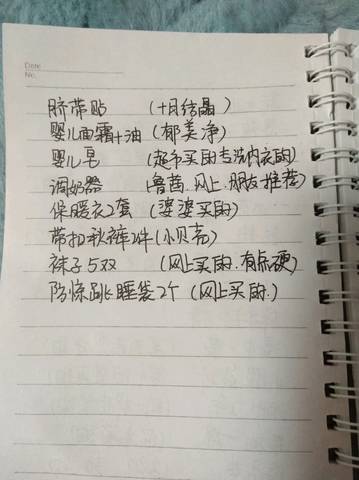 Date
No.
脐带贴 (十月结晶)
婴儿面霜+油 (郁美净)
婴儿皂 (超市买的专洗内衣的)
调奶器 (鲁茜.网上.朋友推荐)
保暖衣2套 (婆婆买的)
带扣秋裤2件(小贝壳)
袜子5双 (网上买的.有点硬)
防惊跳睡袋2个 (网上买的.)